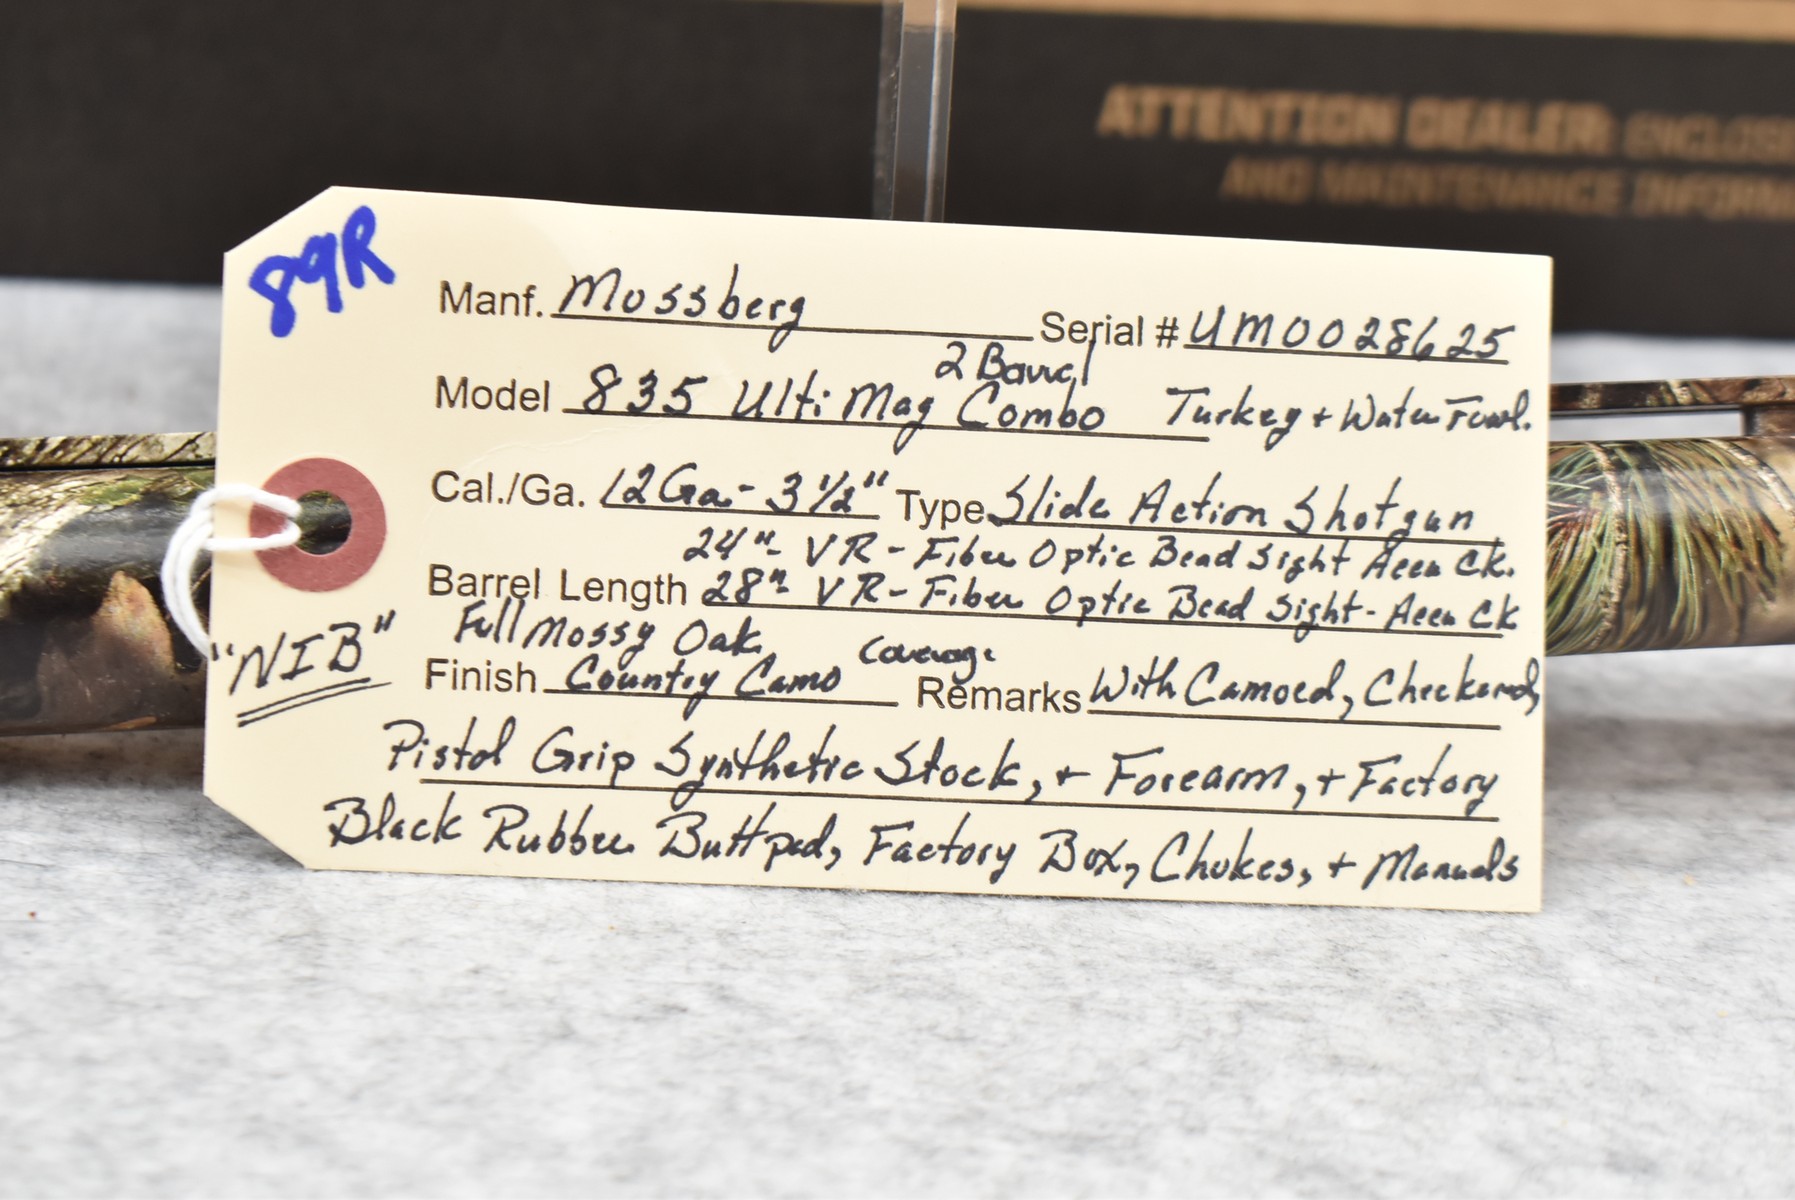 ATTENTION DEALER: ENCLOSE
AND MAINTENANCE INFORM
89R
Manf. Mossberg Serial # UM0028625
2 Barrel
Model 835 Ulti Mag Combo Turkey + WaterFowl.
Cal./Ga. 12Ga- 3 1/2" Type Slide Action Shotgun
24"- VR- Fiber Optic Bead Sight Accu Ck.
Barrel Length 28"- VR- Fiber Optic Bead Sight- Accu Ck
Full Mossy Oak coverage
"NIB"
Finish Country Camo Remarks With Camoed, Checkered,
Pistol Grip Synthetic Stock, + Forearm, + Factory
Black Rubber Buttpad, Factory Box, Chokes, + Manuals